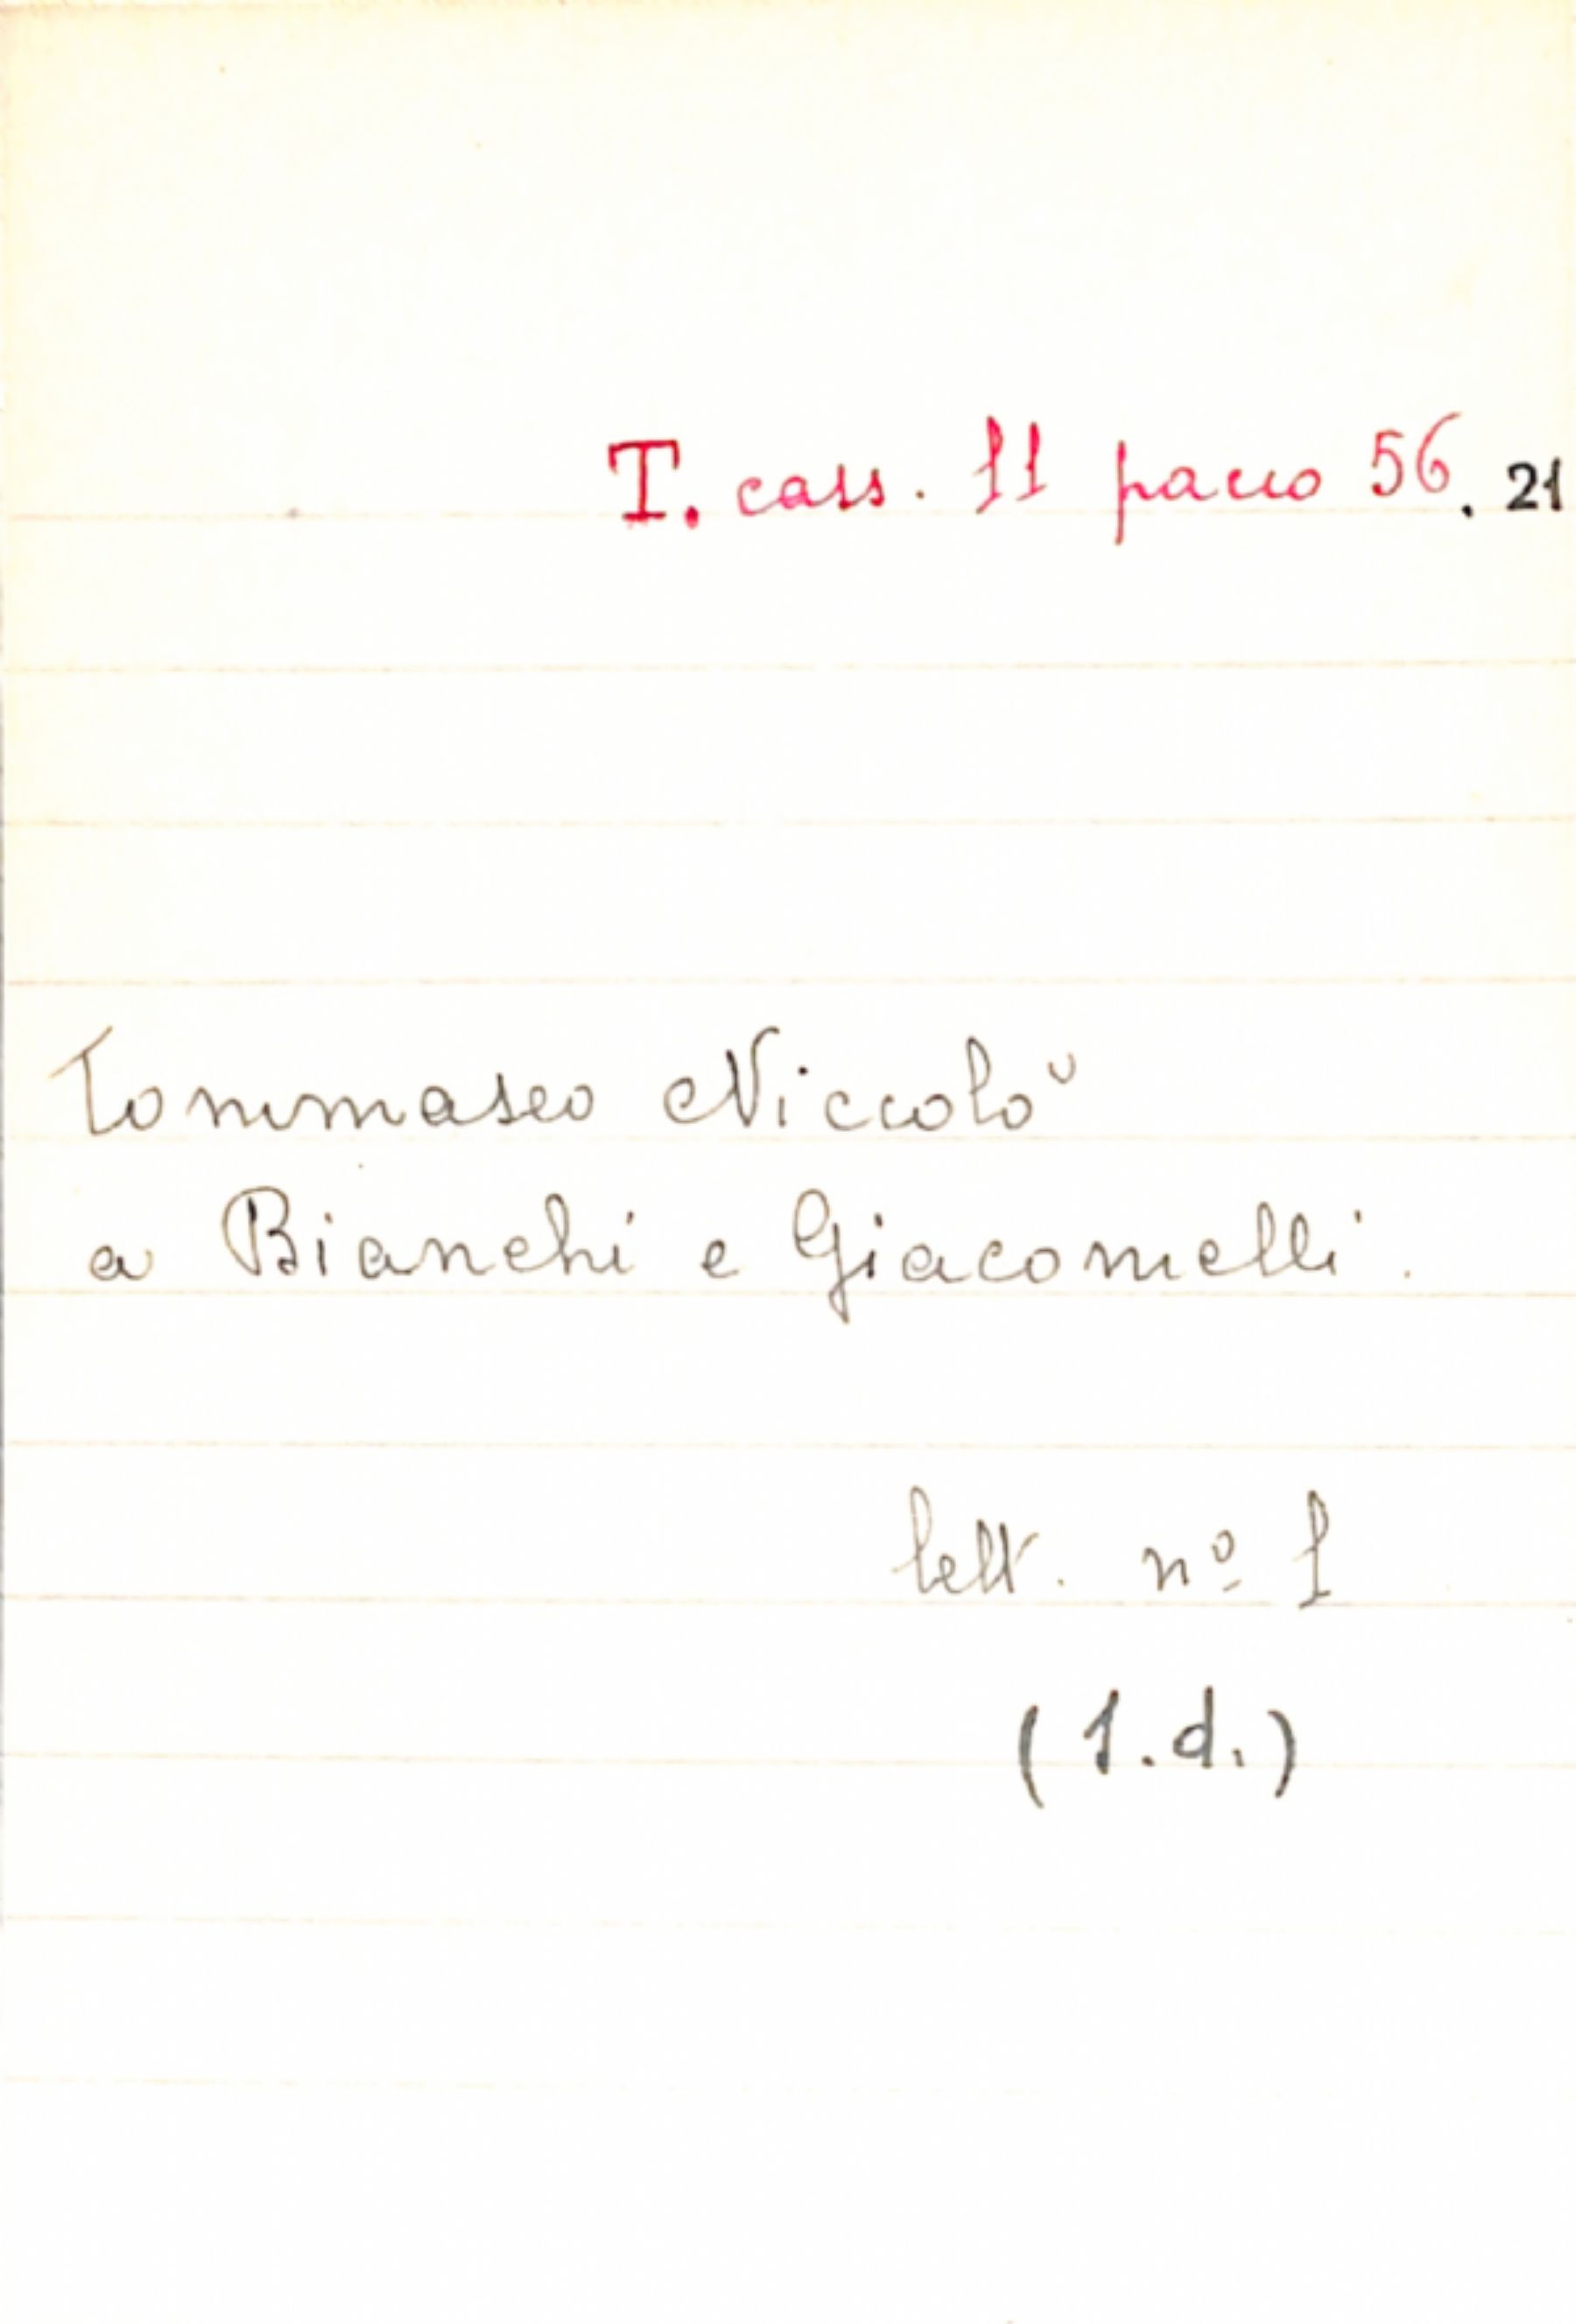 T. cass. 11 pacco 56. 21
Tommaseo Niccolò
a Bianchi e Giacomelli.
lett. nº 1
(1.d.)